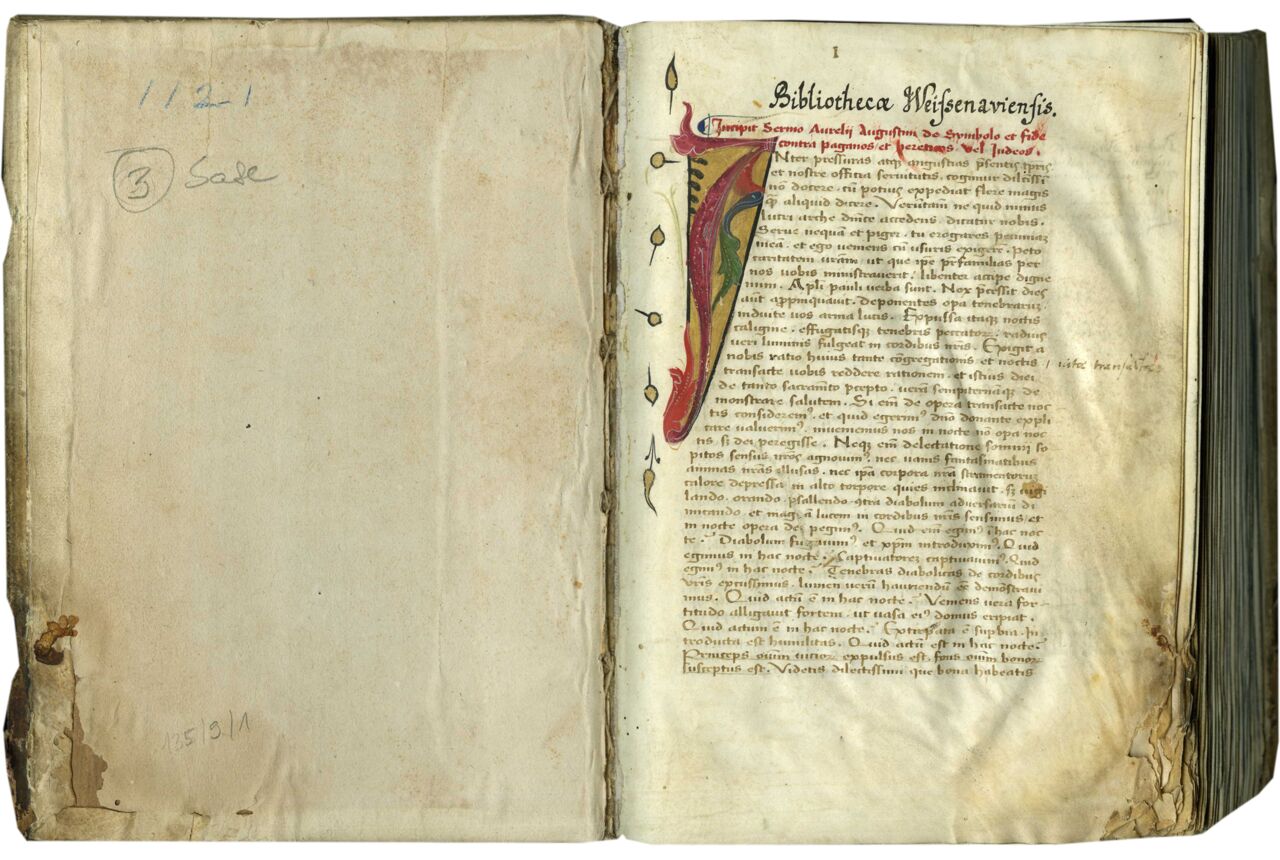 1121
3 Safe
135/9/1
1
Bibliotheca Weissenaviensis.
Incipit Sermo Aurelij Augustini de Symbolo et fide
contra paganos et hereticos vel Iudeos.
Nter pressuras atq; angustias p̃sentis tp̃ris
et nostre officia seruitutis, cogimur dilcissi
nō docere, cū potius expediat flere magis
q̃ aliquid dicere. Verūtam̄ ne quid minus
lucri arche dn̄ice accedens dicatur nobis.
Serue nequam et piger, tu erogares pecuniaꝫ
meā, et ego veniens cū usuris exigerē. Peto
caritatem vr̄am, ut que ip̄e pr̄familias per
nos uobis ministrauerit, libenter accipe digne
mini. Apl̄i pauli verba sunt. Nox p̄cessit dies
aut̄ appinquauit, deponentes opa tenebraruꝫ
induite vos arma lucis. Expulsa itaqꝫ noctis
caligine, effugatisqꝫ tenebris peccatoꝝ, radius
veri luminis fulgeat in cordibus nr̄is. Exigit a
nobis ratio huius tante cōgregationis et noctis
transacte uobis reddere rationem, et istius diei
de tanto sacramēto p̄cepto, verā sempiternaqꝫ de
monstrare salutem. Si em̄ de opera transacte noc
tis consideremꝰ, et quid egerimꝰ dn̄o donante expli
care valuerimꝰ, inueniemus nos in nocte nō opa noc
tis sꝫ dei peregisse. Neqꝫ em̄ delectatione somni so
pitos sensus nr̄os agnouimꝰ, nec vanis fantasmatibus
animas nr̄as illusas, nec ip̄a corpora nr̄a stramentoruꝫ
calore depressa in alto torpore quies inclinauit, sꝫ uigi
lando, orando, psallendo, ꝯtra diabolum aduersariū di
micando, et mag̃ ā lucem in cordibus nr̄is sensimus, et
in nocte opera dei pegimꝰ. Quid em̄ egimꝰ ī hac noc
te. Diabolum fugauimꝰ et xp̄m introduximꝰ. Quid
egimus in hac nocte. Captiuatorē captiuauimꝰ. Quid
egimꝰ in hac nocte. Tenebras diabolicas de cordibus
vr̄is excussimus, lumen verū hauriendū eē demōstraui
mus. Quid actū ē in hac nocte. Veniens vera for
titudo alligauit fortem, ut vasa eiꝰ domus eripiat.
Quid actum ē in hac nocte. Extirpata ē supbia, in
troducta est humilitas. Quid actū est in hac nocte.
Princeps oīum uitioꝝ expulsus est, fons oīum bonoꝝ
susceptus est. Videtis dilectissimi que bona habeatis